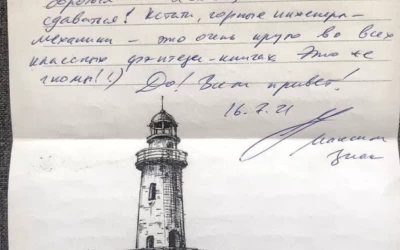 сдаваться! Кстати, горные инженера-
механики – это очень круто во всех
классных фэнтези-книгах. Это же
гномы! :)
До! Всем привет!
16.7.21
Максим